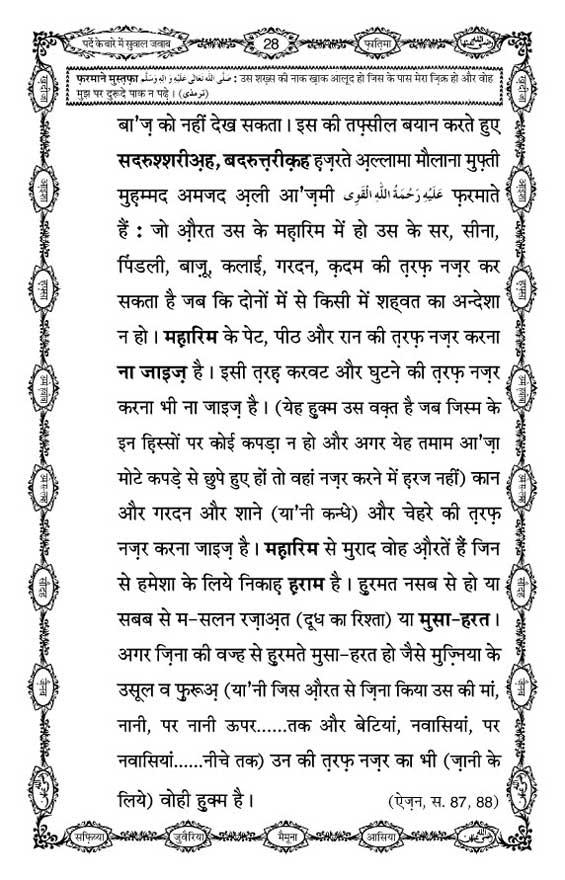 पर्दे के बारे में सुवाल जवाब
28
फ़ातिमा
फ़रमाने मुस्तफ़ा صَلَّى اللهُ تَعَالٰى عَلَيْهِ وَاٰلِهٖ وَسَلَّم : उस शख़्स की नाक ख़ाक आलूद हो जिस के पास मेरा ज़िक्र हो और वोह
मुझ पर दुरूदे पाक न पढ़े । (ترمذی)
बा'ज़ को नहीं देख सकता । इस की तफ़्सील बयान करते हुए
सदरुश्शरीअ़ह, बदरुत्तरीक़ह हज़रते अ़ल्लामा मौलाना मुफ़्ती
मुहम्मद अमजद अ़ली आ'ज़मी عَلَيْهِ رَحْمَةُ اللهِ الْقَوِى फ़रमाते
हैं : जो औ़रत उस के महारिम में हो उस के सर, सीना,
पिंडली, बाज़ू, कलाई, गरदन, क़दम की त़रफ़ नज़र कर
सकता है जब कि दोनों में से किसी में शह्वत का अन्देशा
न हो । महारिम के पेट, पीठ और रान की त़रफ़ नज़र करना
ना जाइज़ है । इसी त़रह करवट और घुटने की त़रफ़ नज़र
करना भी ना जाइज़ है । (येह हुक्म उस वक़्त है जब जिस्म के
इन हिस्सों पर कोई कपड़ा न हो और अगर येह तमाम आ'ज़ा
मोटे कपड़े से छुपे हुए हों तो वहां नज़र करने में हरज नहीं) कान
और गरदन और शाने (या'नी कन्धे) और चेहरे की त़रफ़
नज़र करना जाइज़ है । महारिम से मुराद वोह औ़रतें हैं जिन
से हमेशा के लिये निकाह हराम है । हुरमत नसब से हो या
सबब से म-सलन रज़ाअ़त (दूध का रिश्ता) या मुसा-हरत ।
अगर ज़िना की वज्ह से हुरमते मुसा-हरत हो जैसे मुज़्निया के
उसूल व फ़ुरूअ़ (या'नी जिस औ़रत से ज़िना किया उस की मां,
नानी, पर नानी ऊपर......तक और बेटियां, नवासियां, पर
नवासियां......नीचे तक) उन की त़रफ़ नज़र का भी (ज़ानी के
लिये) वोही हुक्म है ।
(ऐज़न, स. 87, 88)
सफ़िय्या
जुवैरिया
मैमूना
आसिया